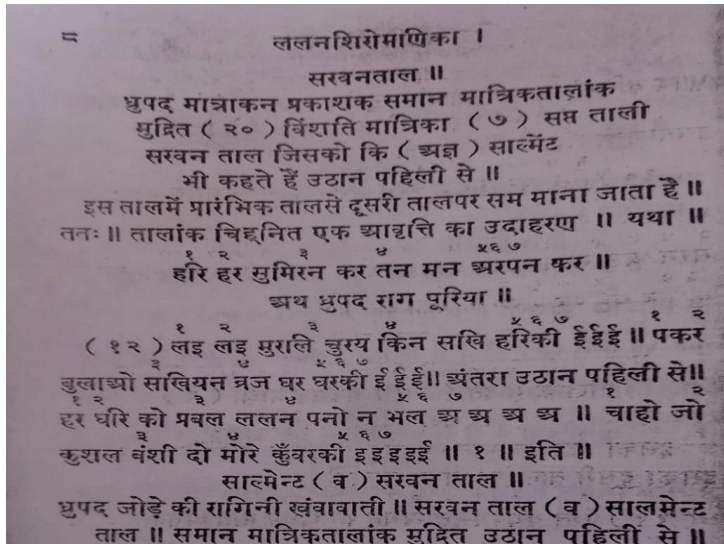 ८ ललनशिरोमाणिका ।
सरवनताल ॥
ध्रुपद मात्राकन प्रकाशक समान मात्रिकतालांक
मुद्रित ( २० ) विंशति मात्रिका ( ७ ) सप्त ताली
सरवन ताल जिसको कि ( अज्ञ ) साल्मेंट
भी कहते हैं उठान पहिली से ॥
इस तालमें प्रारंभिक तालसे दूसरी तालपर सम माना जाता है ॥
ततः ॥ तालांक चिह्नित एक आवृत्ति का उदाहरण ॥ यथा ॥
१ २ ३ ४ ५ ६ ७
हरि हर सुमिरन कर तन मन अरपन कर ॥
अथ ध्रुपद राग पूरिया ॥
१ २ ३ ४ ५ ६ ७ १ २
( १२ ) लइ लइ मुरालि चुरय किन सखि हरिकी ईईई ॥ पकर
३ ४ ५ ६ ७
बुलाओ सखियन ब्रज घर घरकी ईईई॥ अंतरा उठान पहिली से॥
१ २ ३ ४ ५ ६ ७ १ २
हर घरि को प्रबल ललन पनो न भल अ अ अ अ । चाहो जो
३ ४ ५ ६ ७
कुशल बंशी दो मोरे कुँवरकी इइइइई ॥ १ ॥ इति ॥
साल्मेन्ट ( व ) सरवन ताल ॥
ध्रुपद जोड़े की रागिनी खंवावाती ॥ सरवन ताल ( व ) सालमेन्ट
ताल ॥ समान मात्रिकतालांक मुद्रित उठान पहिली से ॥